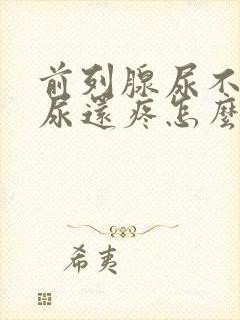 前列腺尿不
尿還疼怎麼
希夷